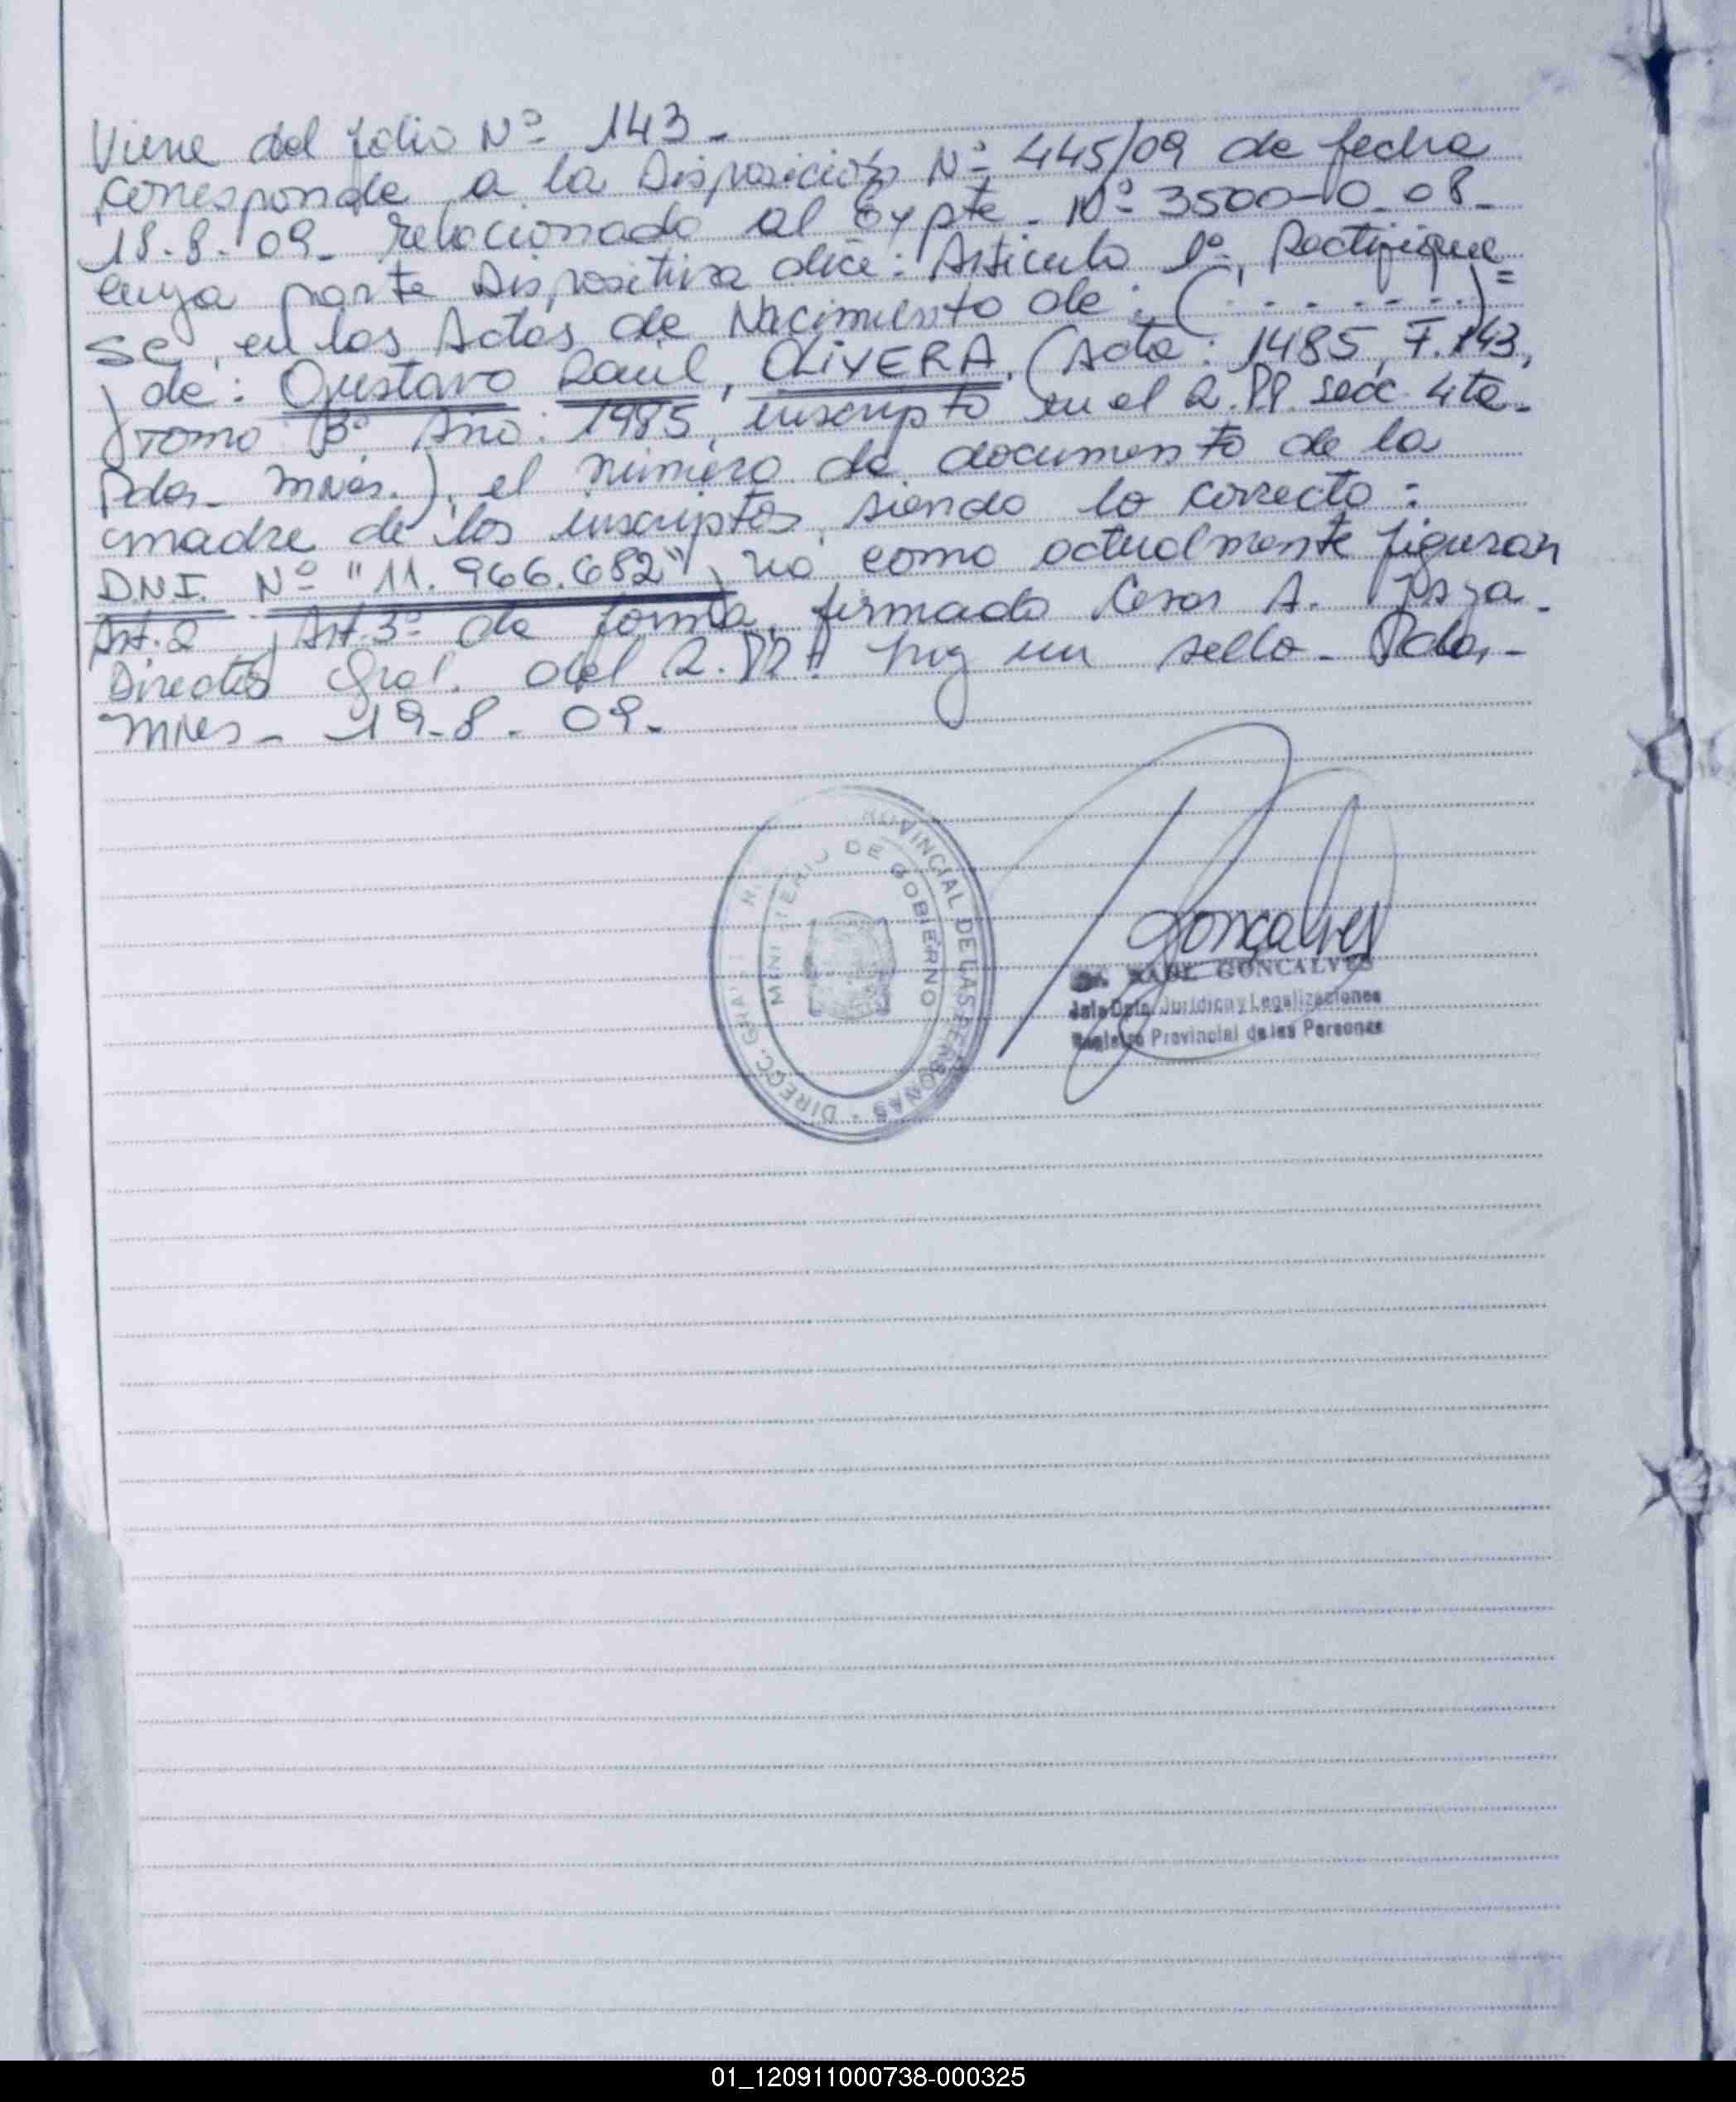 Viene del folio Nº 143-
corresponde a la Disposición Nº 445/09 de fecha
18-8-09- relacionado al Expte. Nº 3500-O-08-
cuya parte Dispositiva dice: Artículo 1º, Rectifíque=
se, en las Actas de Nacimiento de: (.......)
y de: Gustavo Raúl, OLIVERA, (Acta: 1485, F. 143,
Tomo 3º Año: 1985, inscripto en el R.PP. secc. 4ta-
Pdas- Mnes.), el número de documento de la
madre de los inscriptos, siendo lo correcto:
D.N.I. Nº "11.966.682", no como actualmente figuran
Art. 2, Art. 3º de forma, firmado Cesar A.
Director Gral. del R.PP. hay un sello- Pdas,-
Mnes- 19-8-09-
DIRECC. GRAL. PROVINCIAL DE LAS PERSONAS
MINISTERIO DE GOBIERNO
Gonçalves
RAUL GONCALVES
Jefe Dpto. Jurídico y Legalizaciones
Registro Provincial de las Personas
01_120911000738-000325